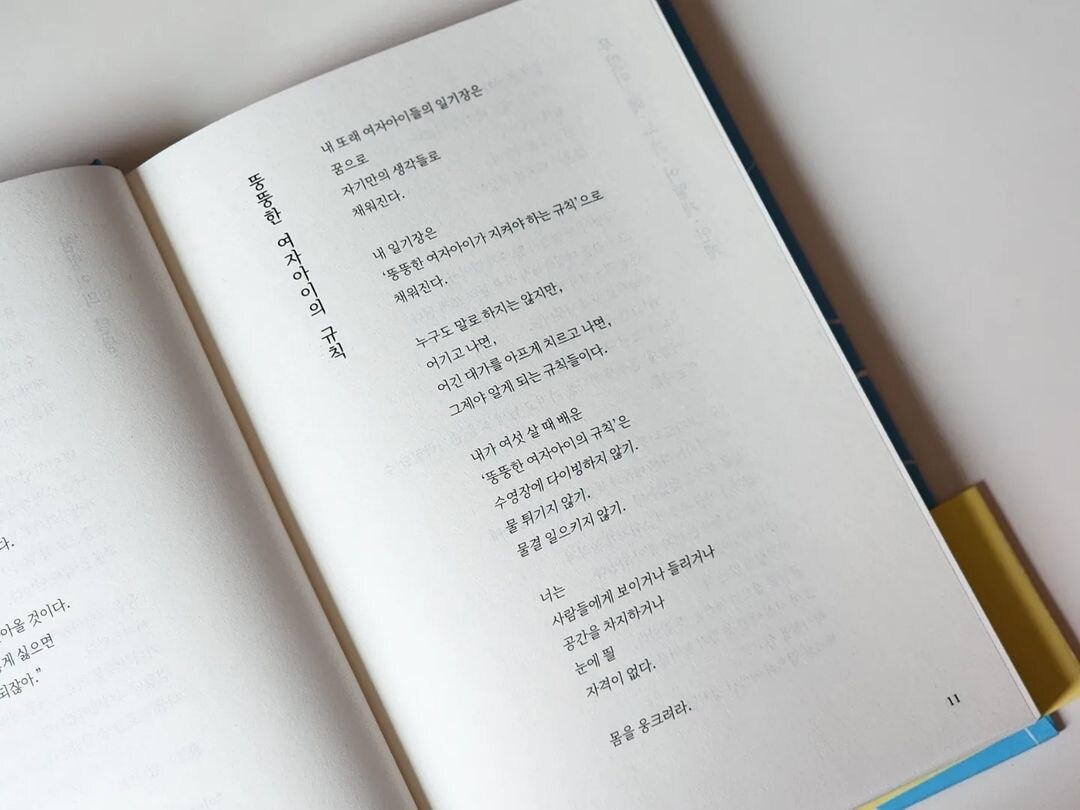 다.
아올 것이다.
게 싫으면
되잖아.”
뚱뚱한 여자아이의 규칙
내 또래 여자아이들의 일기장은
꿈으로
자기만의 생각들로
채워진다.
내 일기장은
‘뚱뚱한 여자아이가 지켜야 하는 규칙’으로
채워진다.
누구도 말로 하지는 않지만,
어기고 나면,
어긴 대가를 아프게 치르고 나면,
그제야 알게 되는 규칙들이다.
내가 여섯 살 때 배운
‘뚱뚱한 여자아이의 규칙’은
수영장에 다이빙하지 않기.
물 튀기지 않기.
물결 일으키지 않기.
너는
사람들에게 보이거나 들리거나
공간을 차지하거나
눈에 띌
자격이 없다.
몸을 웅크려라.
11